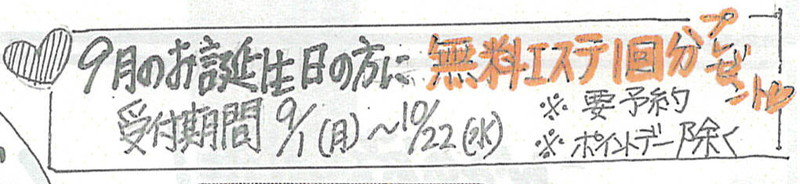 9月のお誕生日の方に 無料エステ1回分プレゼント
受付期間 9/1(月)〜10/22(水) ※要予約
※ポイントデー除く